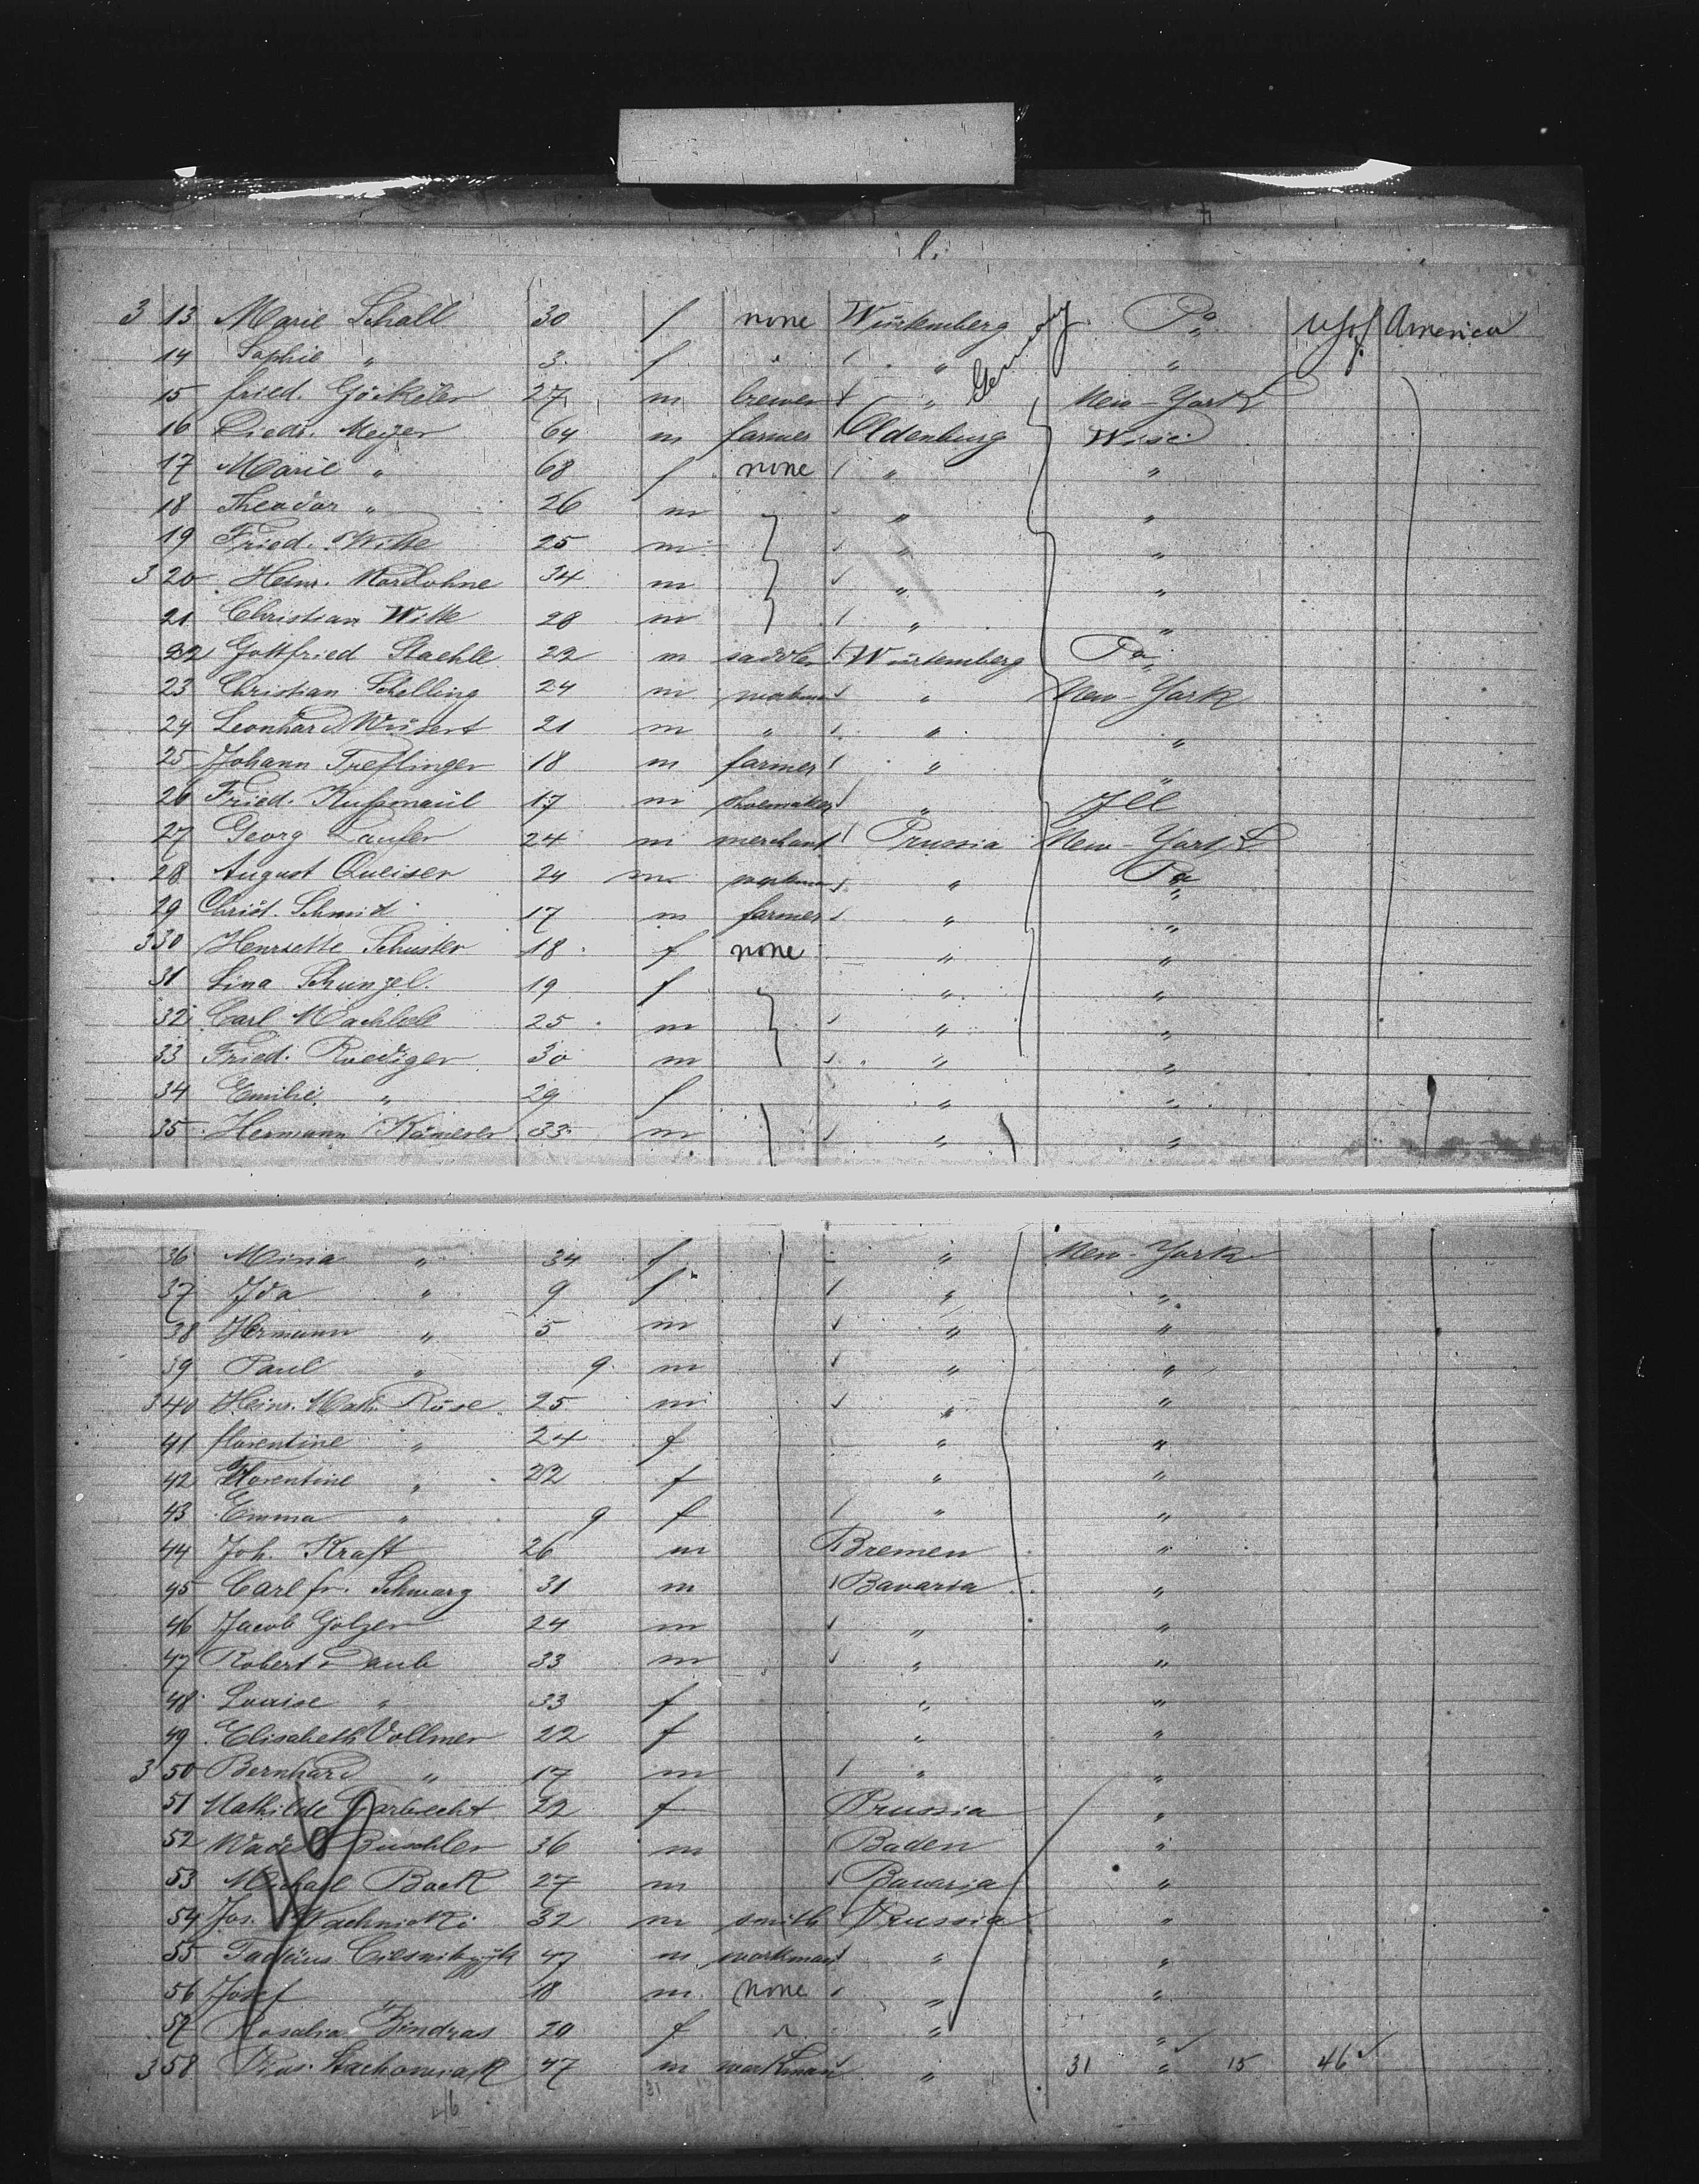 l.
3 13 Marie Schall 30 f none Würtemberg Germany Pa. U.S. of America
14 Sophie " 3 f " " "
15 fried. Göckeler 27 m brewer " New-York
16 Diedr. Meyer 64 m farmer Oldenburg Wisc.
17 Marie " 68 f none " "
18 Theodor " 26 m " "
19 Fried. Witte 25 m " "
3 20 Heinr. Nordlohne 34 m " "
21 Christian Witte 28 m " "
22 Gottfried Staehle 22 m saddler Würtemberg Pa.
23 Christian Schelling 24 m workman " New-York
24 Leonhard 21 m " " "
25 Johann Treflinger 18 m farmer " "
26 Fried. Kußmaul 17 m shoemaker " Ill
27 Georg Laufer 24 m merchant Prussia New-York
28 August Queiser 24 m workman " Pa.
29 Christ. Schmid 17 m farmer " "
3 30 Henriette Schuster 18 f none " "
31 Lina Schunzel 19 f " "
32 Carl 25 m " "
33 Fried. Roediger 30 m " "
34 Emilie " 29 f " "
35 Hermann Kämerer 33 m " "
36 Mina " 34 f " New-York
37 Ida " 9 f " "
38 Hermann " 5 m " "
39 Paul " 9 m " "
3 40 Heinr. Math. Röse 25 m " "
41 florentine " 24 f " "
42 Florentine " 22 f " "
43 Emma " 9 f " "
44 Joh. Kraft 26 m Bremen "
45 Carl fr. Schwarz 31 m Bavaria "
46 Jacob Golzer 24 m " "
47 Robert Daub 33 m " "
48 Louise " 33 f " "
49 Elisabeth Vollmer 22 f " "
3 50 Bernhard " 17 m " "
51 Mathilde Garbrecht 22 f Prussia "
52 Buschler 36 m Baden "
53 Michael Back 27 m Bavaria "
54 Jos. Wachnicki 32 m smith Prussia "
55 47 m workman " "
56 Josef " 18 m none " "
57 Rosalia Bindras 20 f " " "
3 58 Stachowiak 47 m workman " 31 " 15 46
46 31